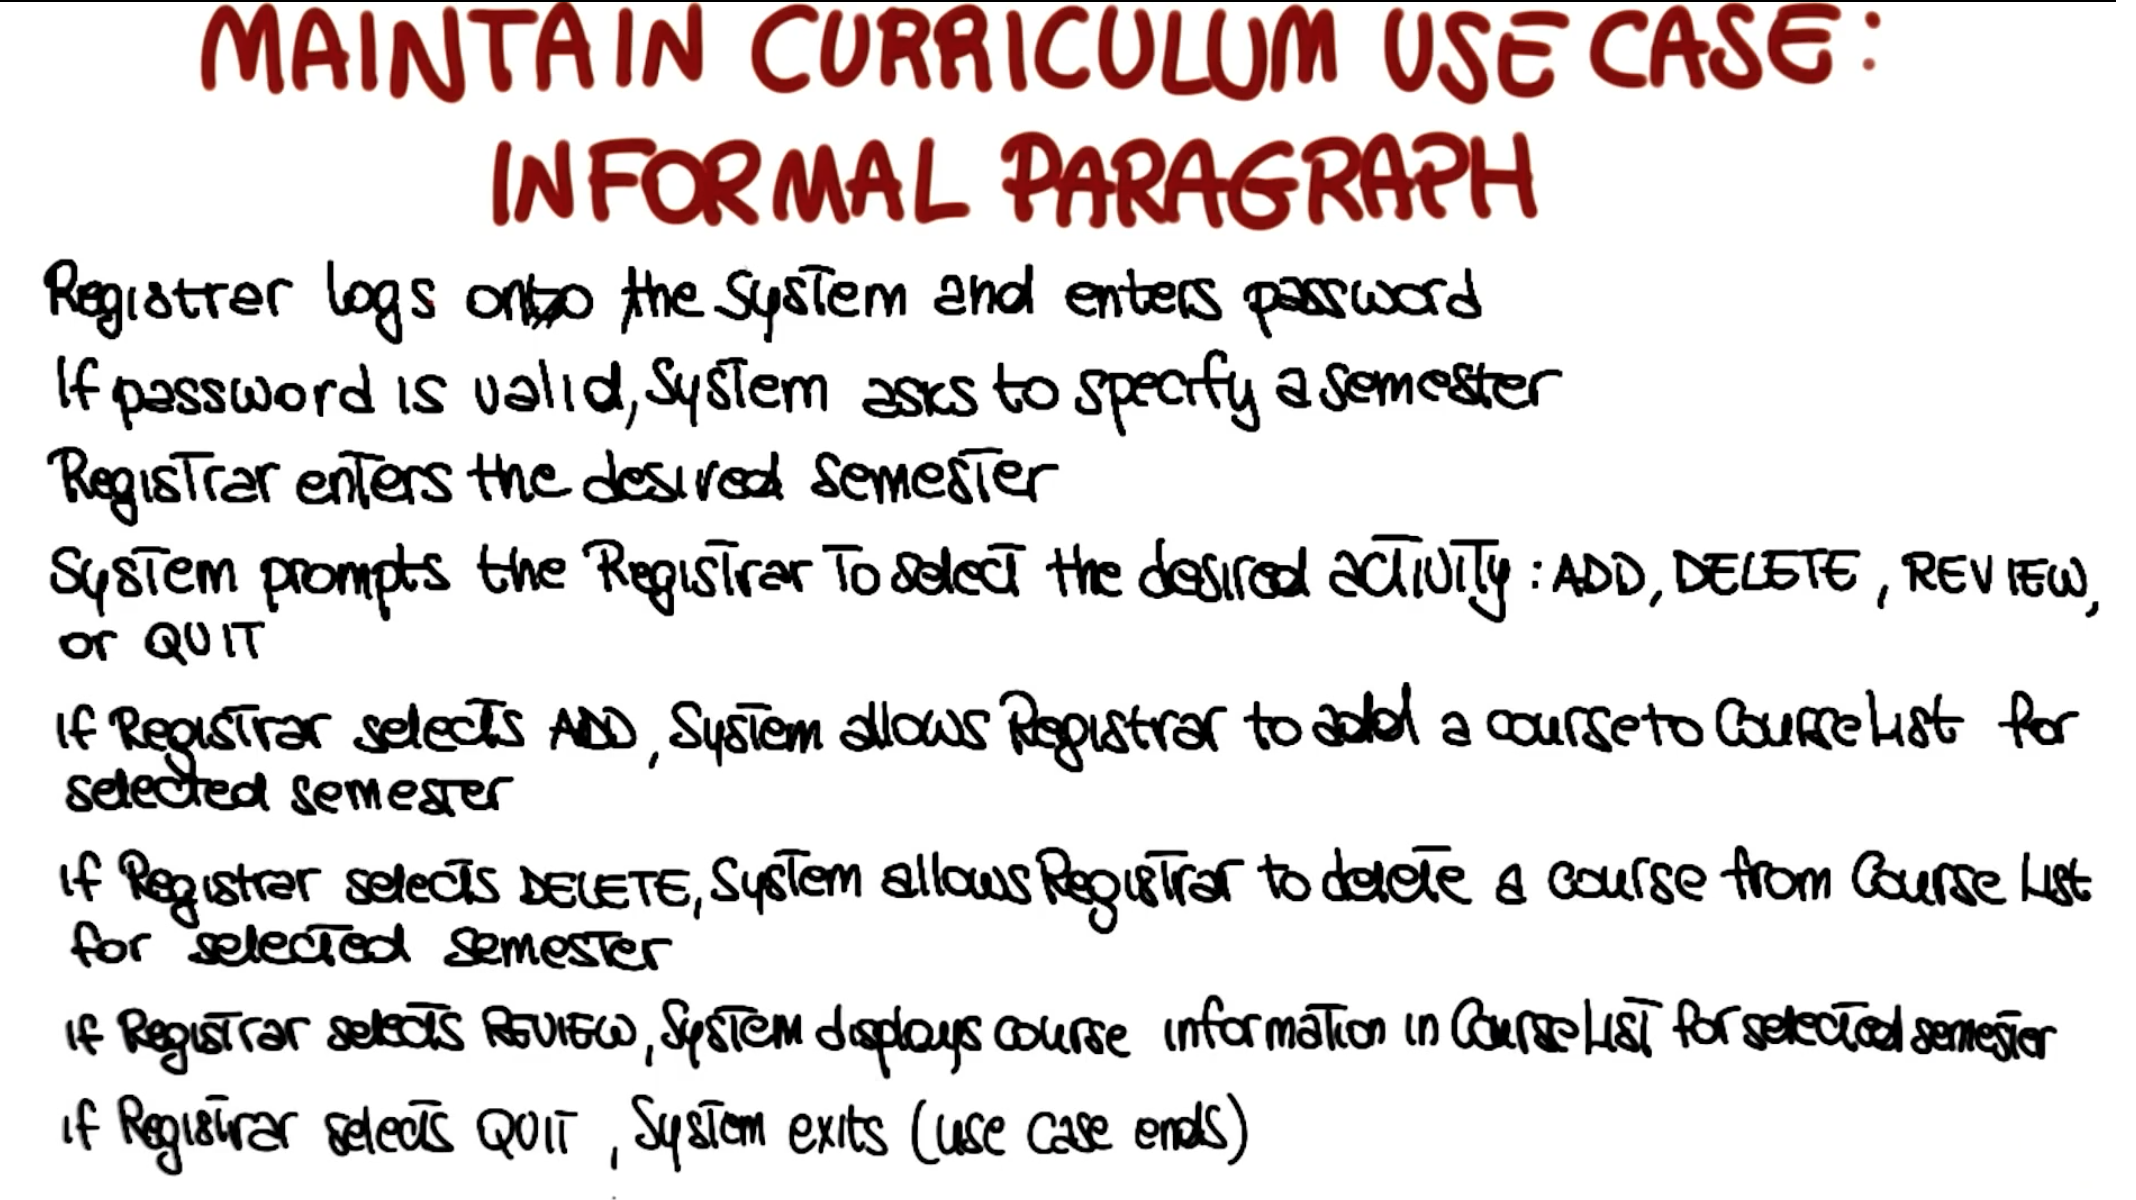 MAINTAIN CURRICULUM USE CASE:
INFORMAL PARAGRAPH
Registrar logs onto the System and enters password
If password is valid, System asks to specify a semester
Registrar enters the desired semester
System prompts the Registrar to select the desired activity: ADD, DELETE, REVIEW,
or QUIT
if Registrar selects ADD, System allows Registrar to add a course to Course List for
selected semester
if Registrar selects DELETE, System allows Registrar to delete a course from Course List
for selected semester
if Registrar selects REVIEW, System displays course information in Course List for selected semester
if Registrar selects QUIT, System exits (use case ends)